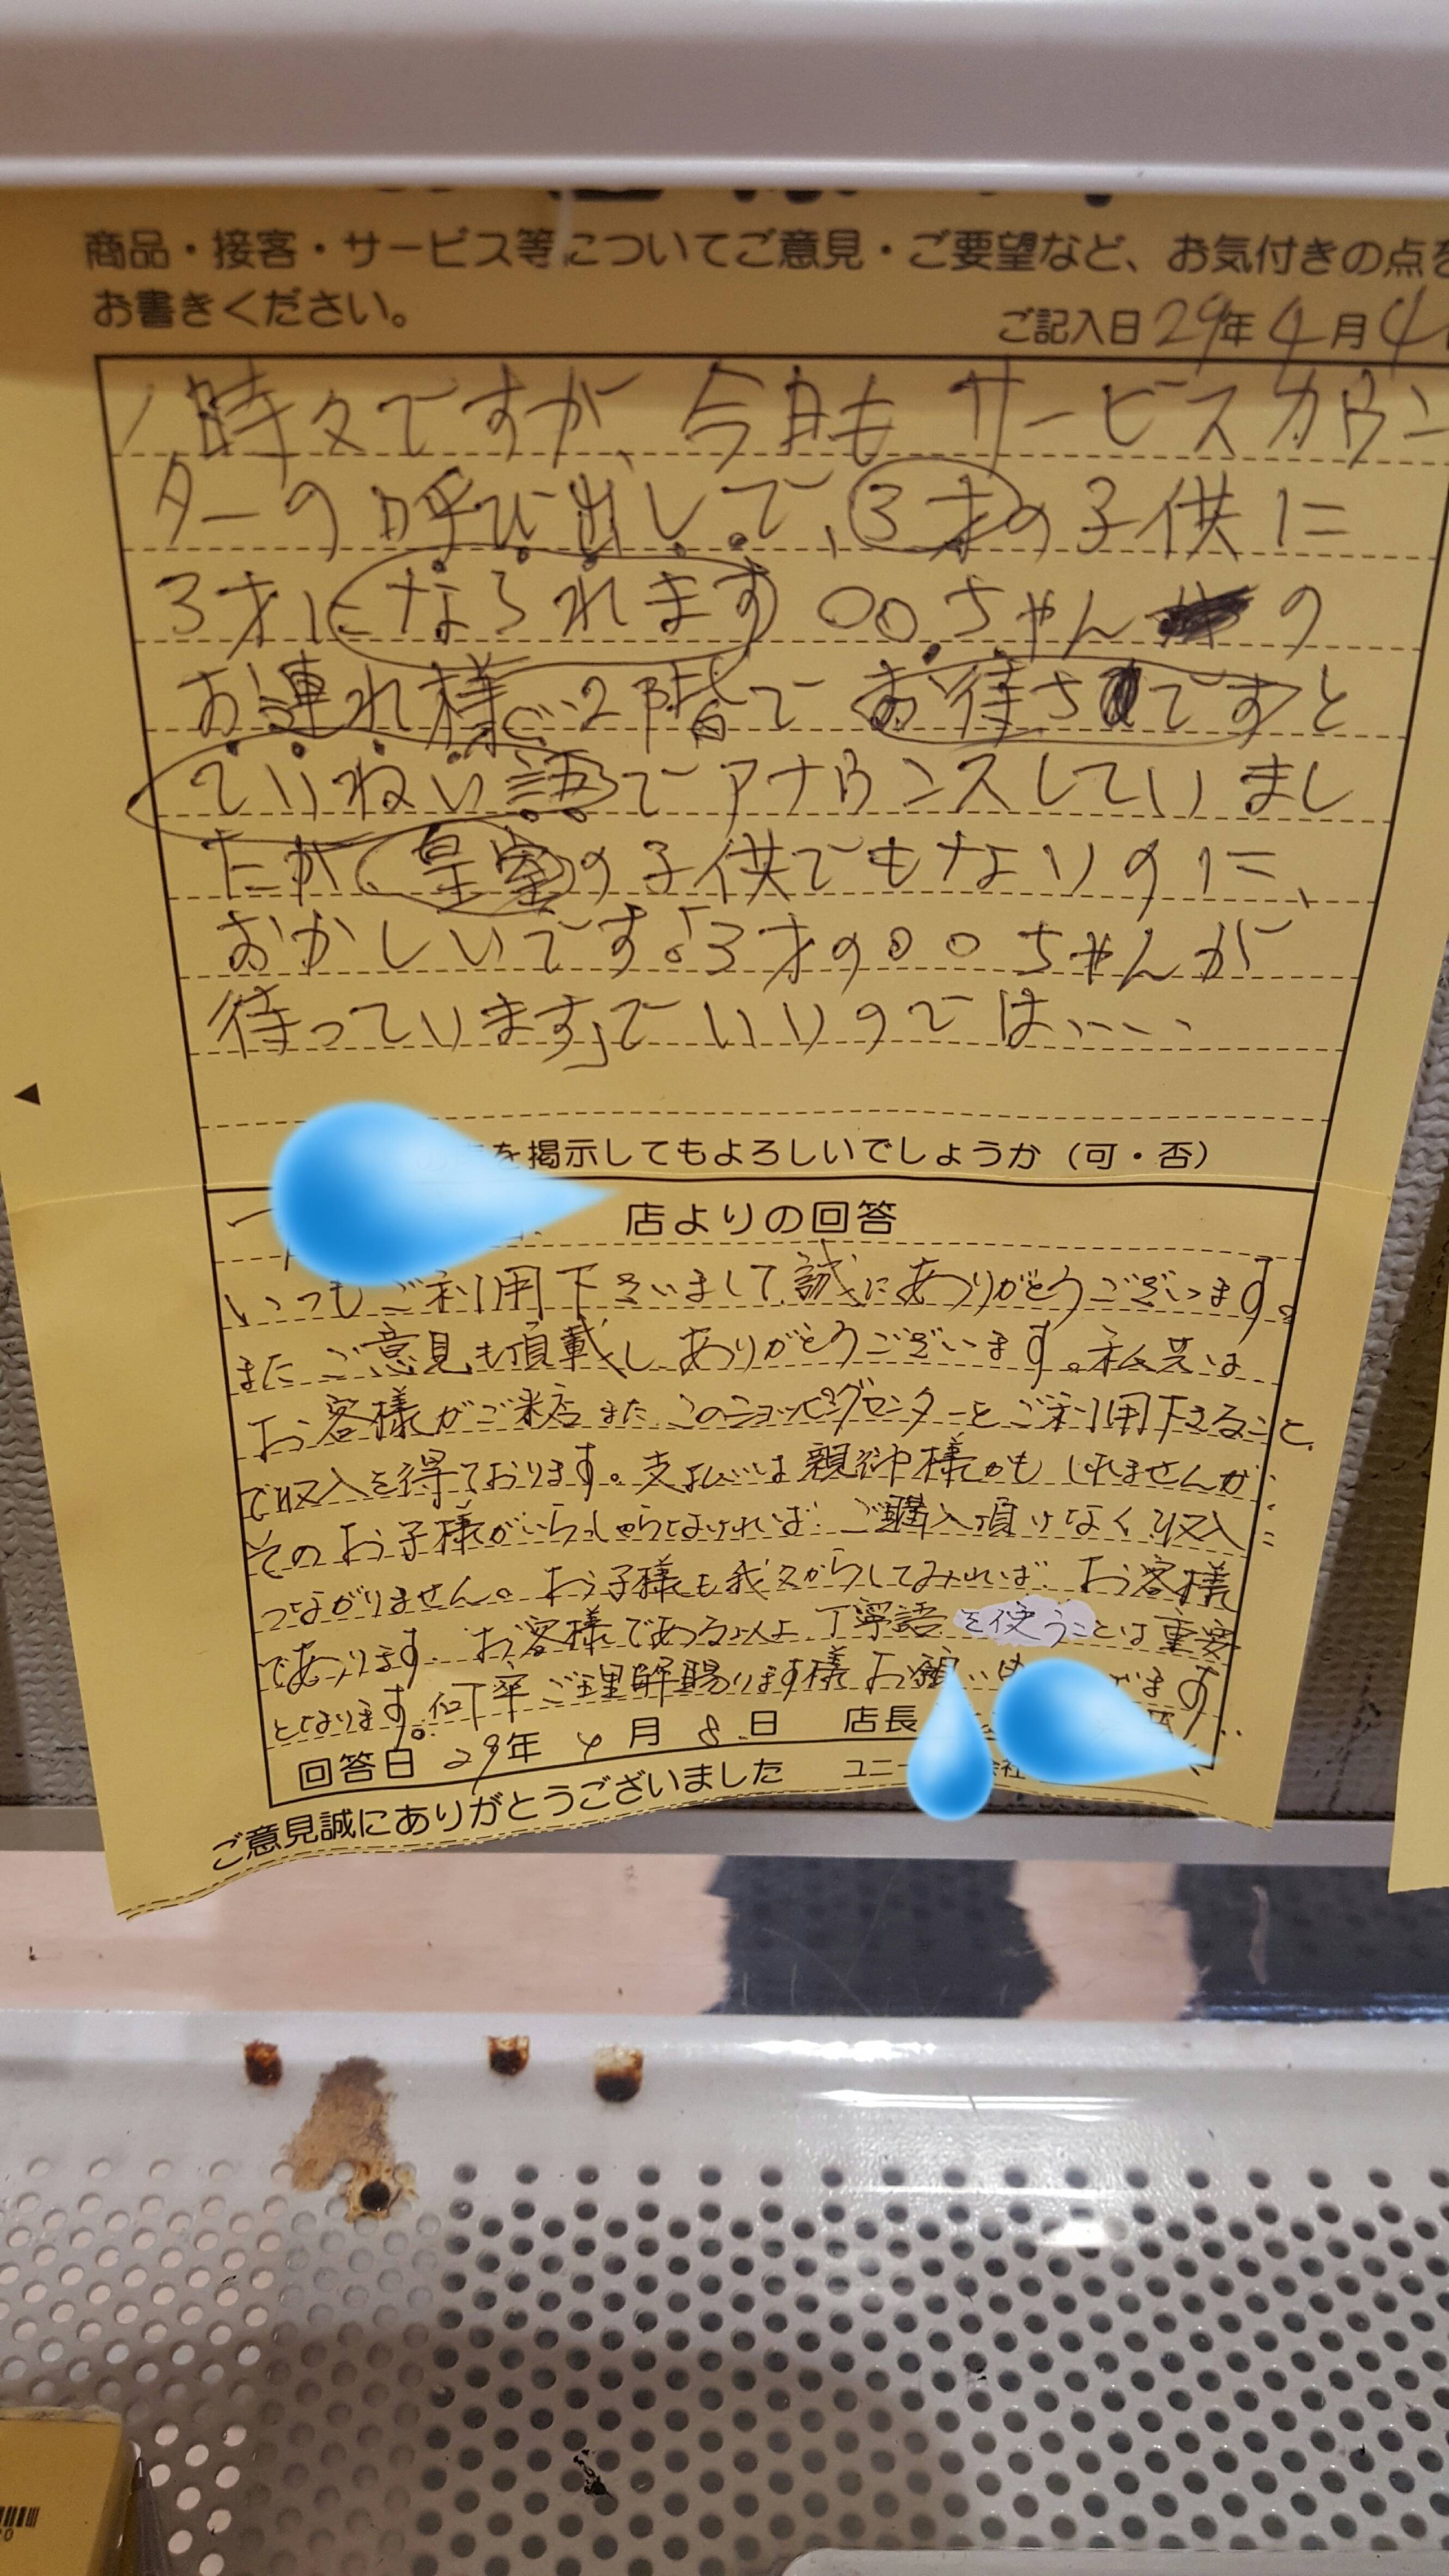 商品・接客・サービス等についてご意見・ご要望など、お気付きの点を
お書きください。
ご記入日 29年 4月 4
時々ですが、今日も サービスカウン
ターの呼び出しで、3才の子供に
3才になられます ○○ちゃん の
お連れ様が2階で お待ちですと
ていねい語でアナウンスしていまし
たが 皇室の子供でもないのに、
おかしいです。「3才の○○ちゃんが
待っています」でいいのでは、、、、
を掲示してもよろしいでしょうか（可・否）
店よりの回答
いつもご利用下さいまして誠にありがとうございます。
またご意見も頂載し、ありがとうございます。私共は
お客様がご来店また このショッピングセンターをご利用下さること
で収入を得ております。支払いは親御様かもしれませんが
そのお子様がいらっしゃらなければ、ご購入頂けなく収入に
つながりません。お子様も我々からしてみれば、お客様
であります。お客様である以上 丁寧語を使うことは重要
となります。何卒ご理解賜ります様お願い ます
回答日 29年 4月 8日 店長
ユニー 会社
ご意見誠にありがとうございました